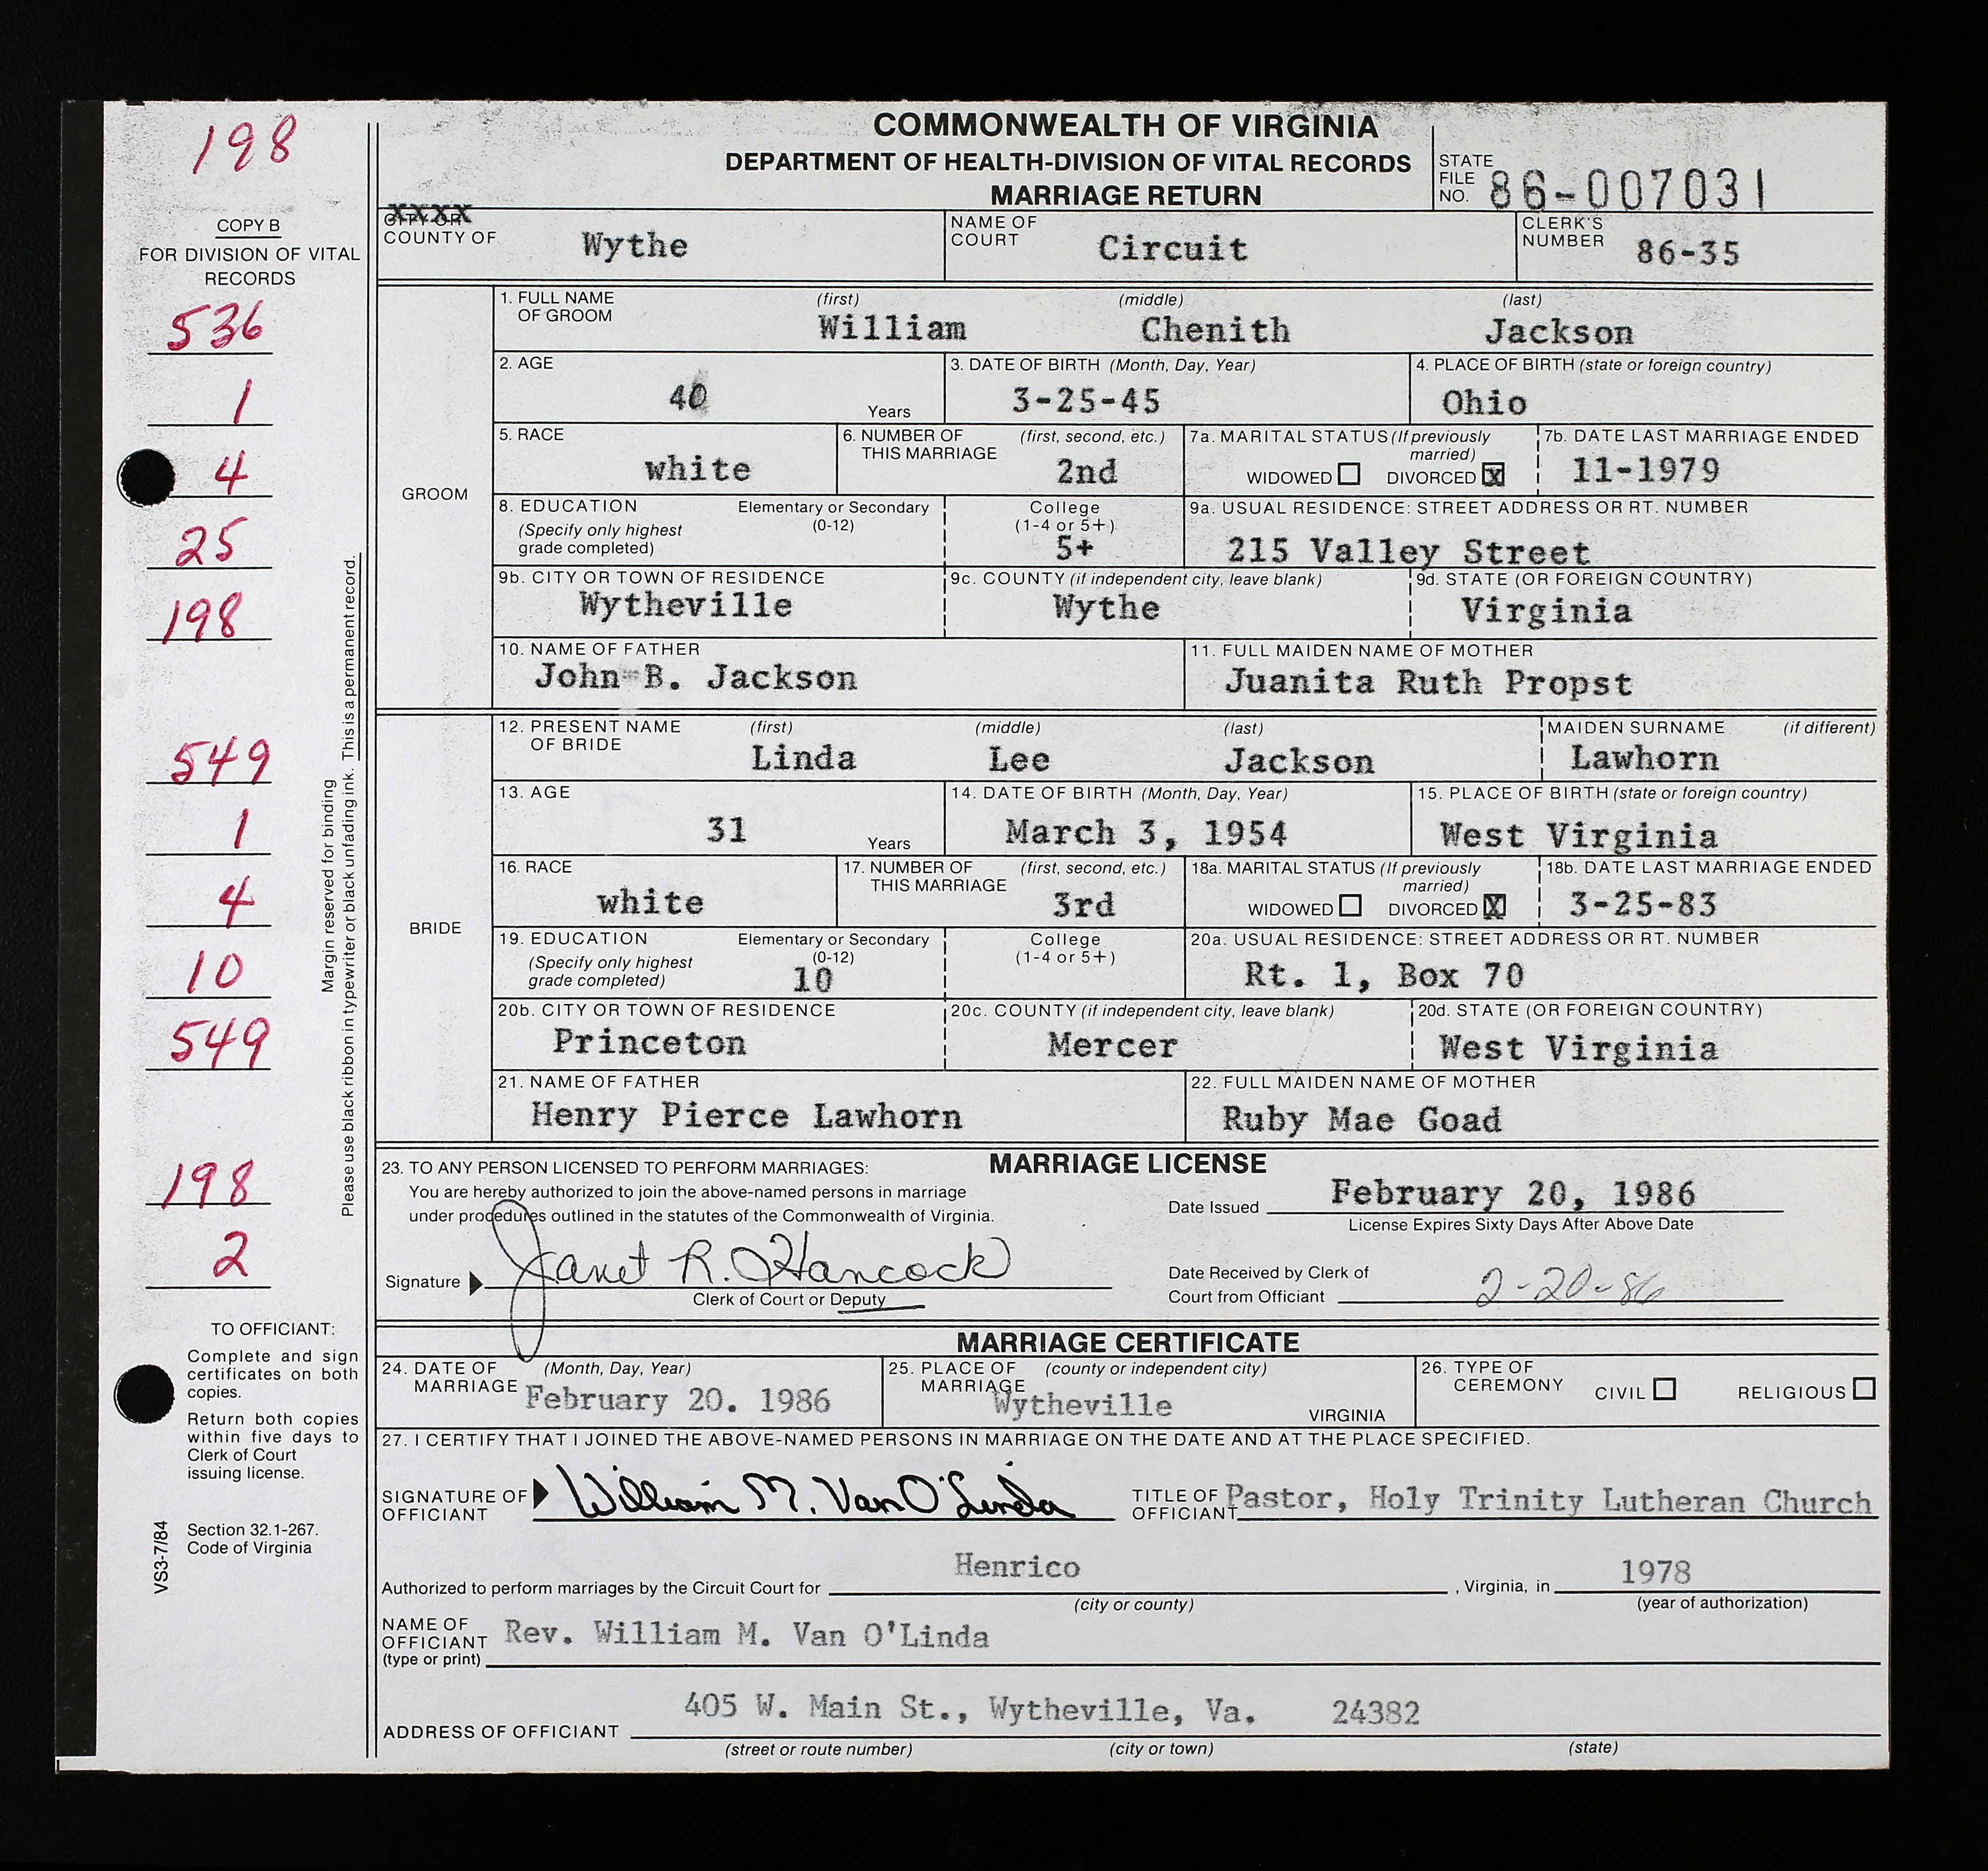 198
COMMONWEALTH OF VIRGINIA
DEPARTMENT OF HEALTH-DIVISION OF VITAL RECORDS
MARRIAGE RETURN
STATE FILE NO. 86-007031
COPY B
FOR DIVISION OF VITAL
RECORDS
XXXX
CITY OR
COUNTY OF Wythe
NAME OF COURT Circuit
CLERK'S NUMBER 86-35
536
1
4
25
198
549
1
4
10
549
198
2
Margin reserved for binding
Please use black ribbon in typewriter or black unfading ink. This is a permanent record.
GROOM
1. FULL NAME OF GROOM (first) (middle) (last)
William Chenith Jackson
2. AGE 40 Years
3. DATE OF BIRTH (Month, Day, Year) 3-25-45
4. PLACE OF BIRTH (state or foreign country) Ohio
5. RACE white
6. NUMBER OF THIS MARRIAGE (first, second, etc.) 2nd
7a. MARITAL STATUS (If previously married) WIDOWED DIVORCED X
7b. DATE LAST MARRIAGE ENDED 11-1979
8. EDUCATION (Specify only highest grade completed) Elementary or Secondary (0-12) College (1-4 or 5+) 5+
9a. USUAL RESIDENCE: STREET ADDRESS OR RT. NUMBER 215 Valley Street
9b. CITY OR TOWN OF RESIDENCE Wytheville
9c. COUNTY (if independent city, leave blank) Wythe
9d. STATE (OR FOREIGN COUNTRY) Virginia
10. NAME OF FATHER John B. Jackson
11. FULL MAIDEN NAME OF MOTHER Juanita Ruth Propst
BRIDE
12. PRESENT NAME OF BRIDE (first) (middle) (last) MAIDEN SURNAME (if different)
Linda Lee Jackson Lawhorn
13. AGE 31 Years
14. DATE OF BIRTH (Month, Day, Year) March 3, 1954
15. PLACE OF BIRTH (state or foreign country) West Virginia
16. RACE white
17. NUMBER OF THIS MARRIAGE (first, second, etc.) 3rd
18a. MARITAL STATUS (If previously married) WIDOWED DIVORCED X
18b. DATE LAST MARRIAGE ENDED 3-25-83
19. EDUCATION (Specify only highest grade completed) Elementary or Secondary (0-12) 10 College (1-4 or 5+)
20a. USUAL RESIDENCE: STREET ADDRESS OR RT. NUMBER Rt. 1, Box 70
20b. CITY OR TOWN OF RESIDENCE Princeton
20c. COUNTY (if independent city, leave blank) Mercer
20d. STATE (OR FOREIGN COUNTRY) West Virginia
21. NAME OF FATHER Henry Pierce Lawhorn
22. FULL MAIDEN NAME OF MOTHER Ruby Mae Goad
23. TO ANY PERSON LICENSED TO PERFORM MARRIAGES: MARRIAGE LICENSE
You are hereby authorized to join the above-named persons in marriage
under procedures outlined in the statutes of the Commonwealth of Virginia.
Date Issued February 20, 1986
License Expires Sixty Days After Above Date
Signature Janet R. Hancock
Clerk of Court or Deputy
Date Received by Clerk of
Court from Officiant 2-20-86
TO OFFICIANT:
Complete and sign
certificates on both
copies.
Return both copies
within five days to
Clerk of Court
issuing license.
Section 32.1-267.
Code of Virginia
VS3-7/84
MARRIAGE CERTIFICATE
24. DATE OF MARRIAGE (Month, Day, Year) February 20. 1986
25. PLACE OF MARRIAGE (county or independent city) Wytheville VIRGINIA
26. TYPE OF CEREMONY CIVIL RELIGIOUS
27. I CERTIFY THAT I JOINED THE ABOVE-NAMED PERSONS IN MARRIAGE ON THE DATE AND AT THE PLACE SPECIFIED.
SIGNATURE OF OFFICIANT William M. Van O'Linda
TITLE OF OFFICIANT Pastor, Holy Trinity Lutheran Church
Authorized to perform marriages by the Circuit Court for Henrico, Virginia, in 1978
(city or county) (year of authorization)
NAME OF OFFICIANT (type or print) Rev. William M. Van O'Linda
ADDRESS OF OFFICIANT 405 W. Main St., Wytheville, Va. 24382
(street or route number) (city or town) (state)